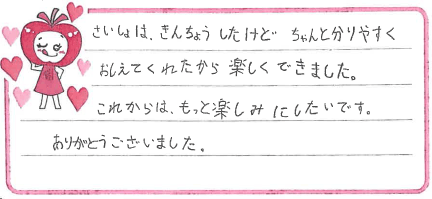 さいしょは、きんちょうしたけど ちゃんと分りやすく
おしえてくれたから 楽しくできました。
これからは、もっと楽しみにしたいです。
ありがとうございました。